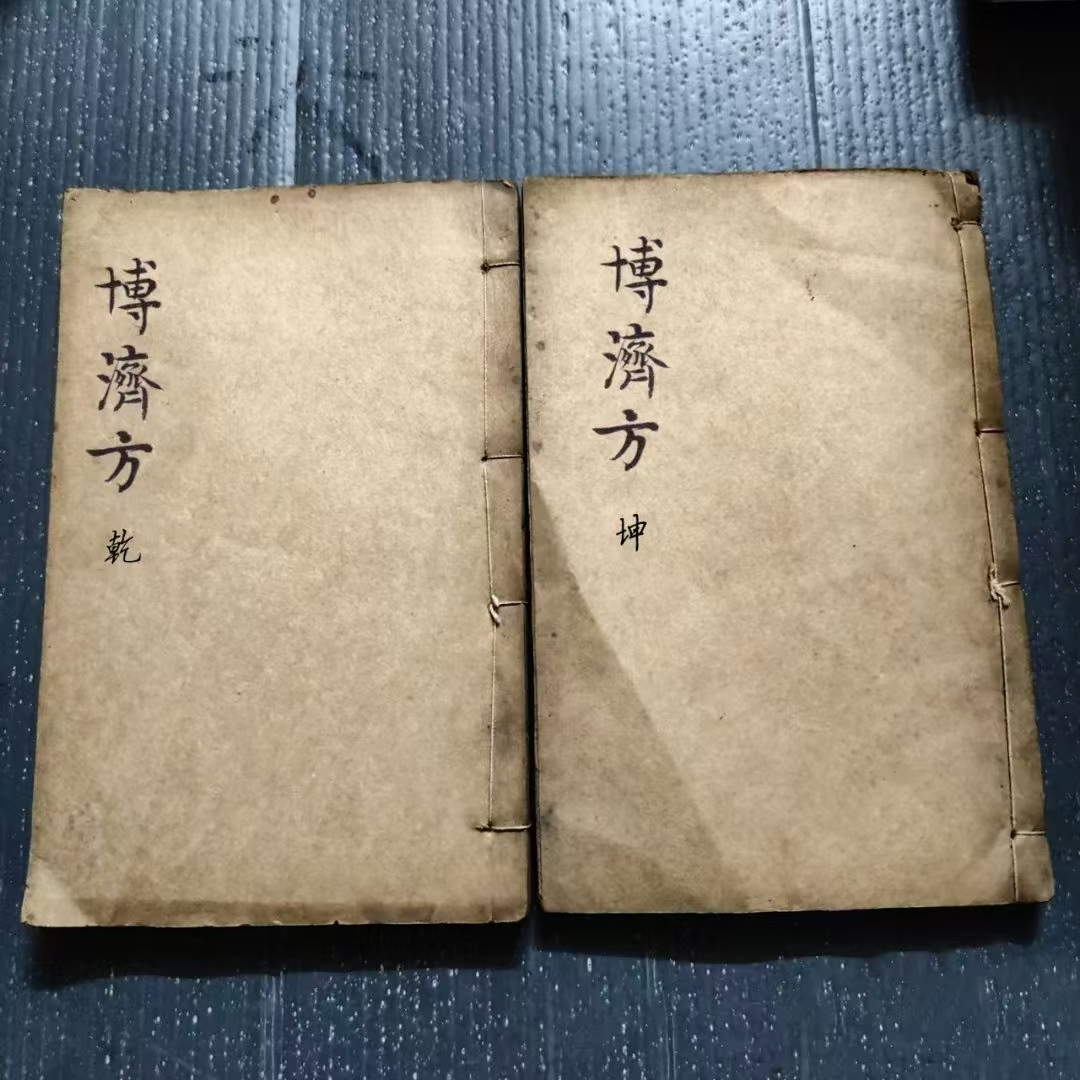 博濟方
乾
博濟方
坤